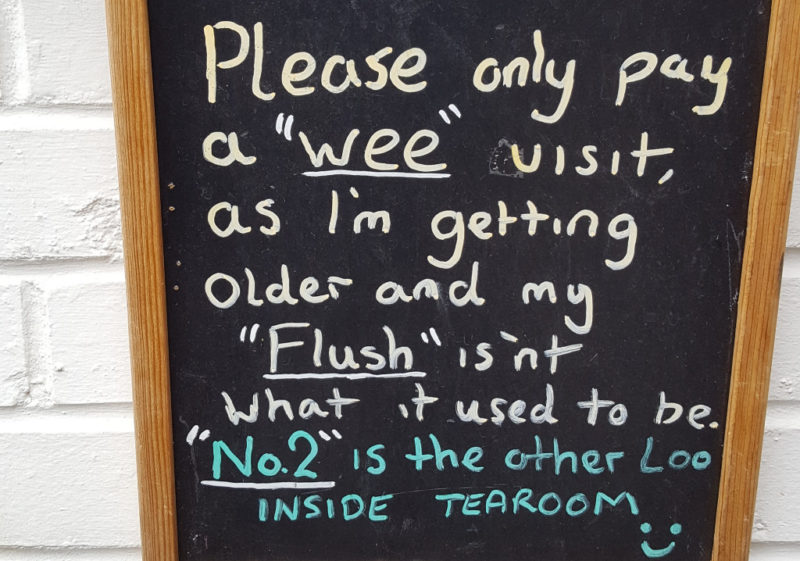 Please only pay
a "wee" visit,
as I'm getting
older and my
"Flush" is'nt
what it used to be.
"No.2" is the other Loo
INSIDE TEAROOM